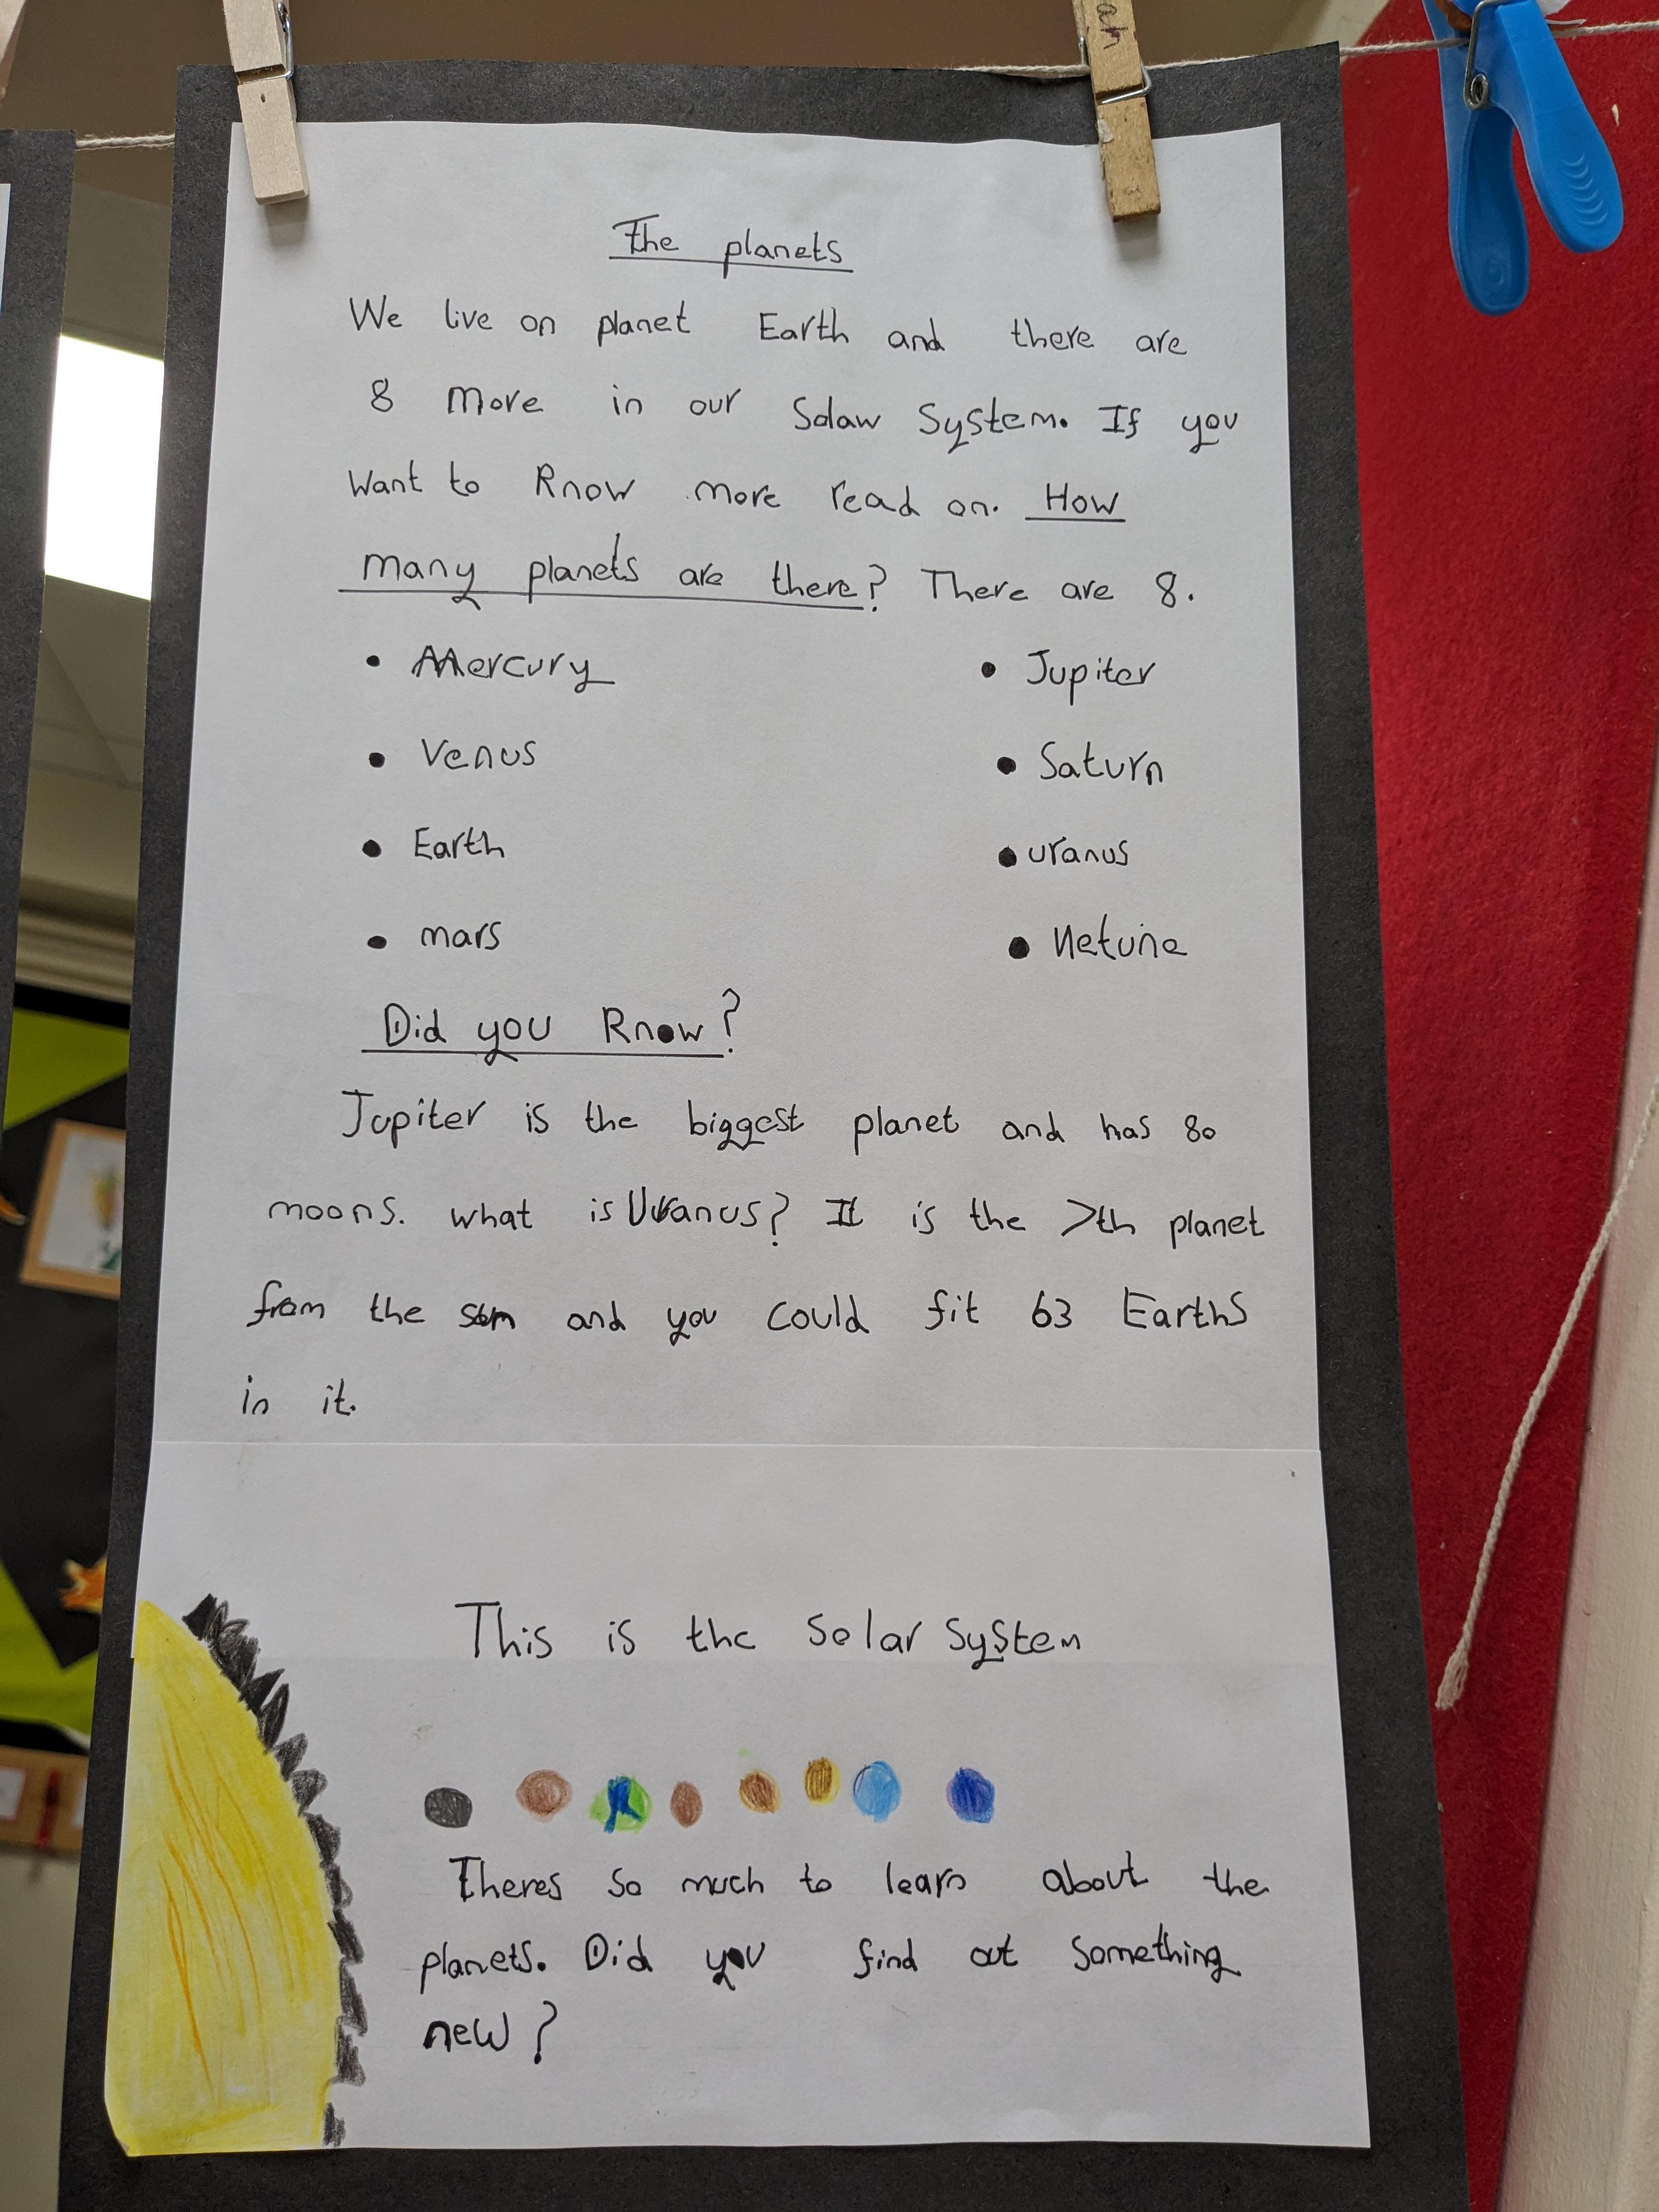 The planets
We live on planet Earth and there are
8 more in our Solaw System. If you
Want to Rnow more read on. How
many planets are there? There are 8.
• Mercury • Jupiter
• Venus • Saturn
• Earth • uranus
• mars • Netune
Did you Rnow?
Jupiter is the biggest planet and has 80
moons. what is Uranus? It is the 7th planet
from the sun and you could fit 63 Earths
in it.
This is the Solar System
Theres so much to learn about the
planets. Did you find out something
new?